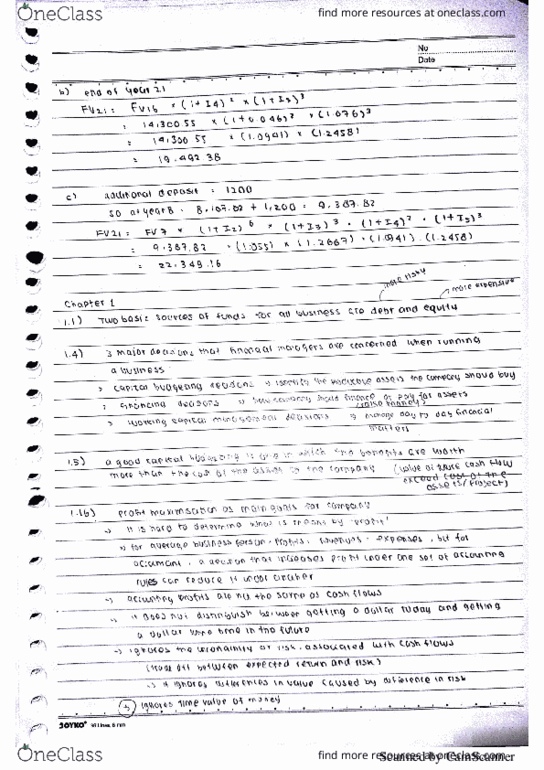 OneClass
find more resources at oneclass.com
No
Date
b) end of year 21
FV21 : FV16 × (1+I4)² × (1+I5)³
= 14,300.55 × (1+0.046)² × (1.076)³
= 14,300.55 × (1.0941) × (1.2458)
= 19.492.38
c) additional deposit = 1200
so at year 8 = 8,187.82 + 1,200 = 9.387.82
FV21 = FV7 × (1+I2)⁶ × (1+I3)³ × (1+I4)² × (1+I5)³
= 9.387.82 × (1.055) × (1.2667) × (1.0941) × (1.2458)
= 22.349.16
more risky
more expensive
Chapter 1
1.1) Two basic sources of funds for all business are debt and equity
1.4) 3 major decisions that financial managers are concerned when running
a business
> capital budgeting decisions → identify the productive assets the company should buy
> financing decisions → how company should finance or pay for assets
(raise money)
> working capital management decisions → manage day to day financial
matters
1.5) a good capital budgeting is one in which the benefits are worth
more than the cost of the asset to the company (value of future cash flow
exceed cost of the
assets/project)
1.16) profit maximisation as main goals for company
→ it is hard to determine what is meant by 'profit'
→ for average business person, profits = revenues - expenses, but for
accountant, a decision that increases profit under one set of accounting
rules can reduce it under another
→ accounting profits are not the same as cash flows
→ it does not distinguish between getting a dollar today and getting
a dollar some time in the future
→ ignores the uncertainty or risk associated with cash flows
(trade off between expected return and risk)
→ it ignores differences in value caused by difference in risk
ignores time value of money
JOYKO
OneClass
find more resources at oneclass.com
Scanned by CamScanner